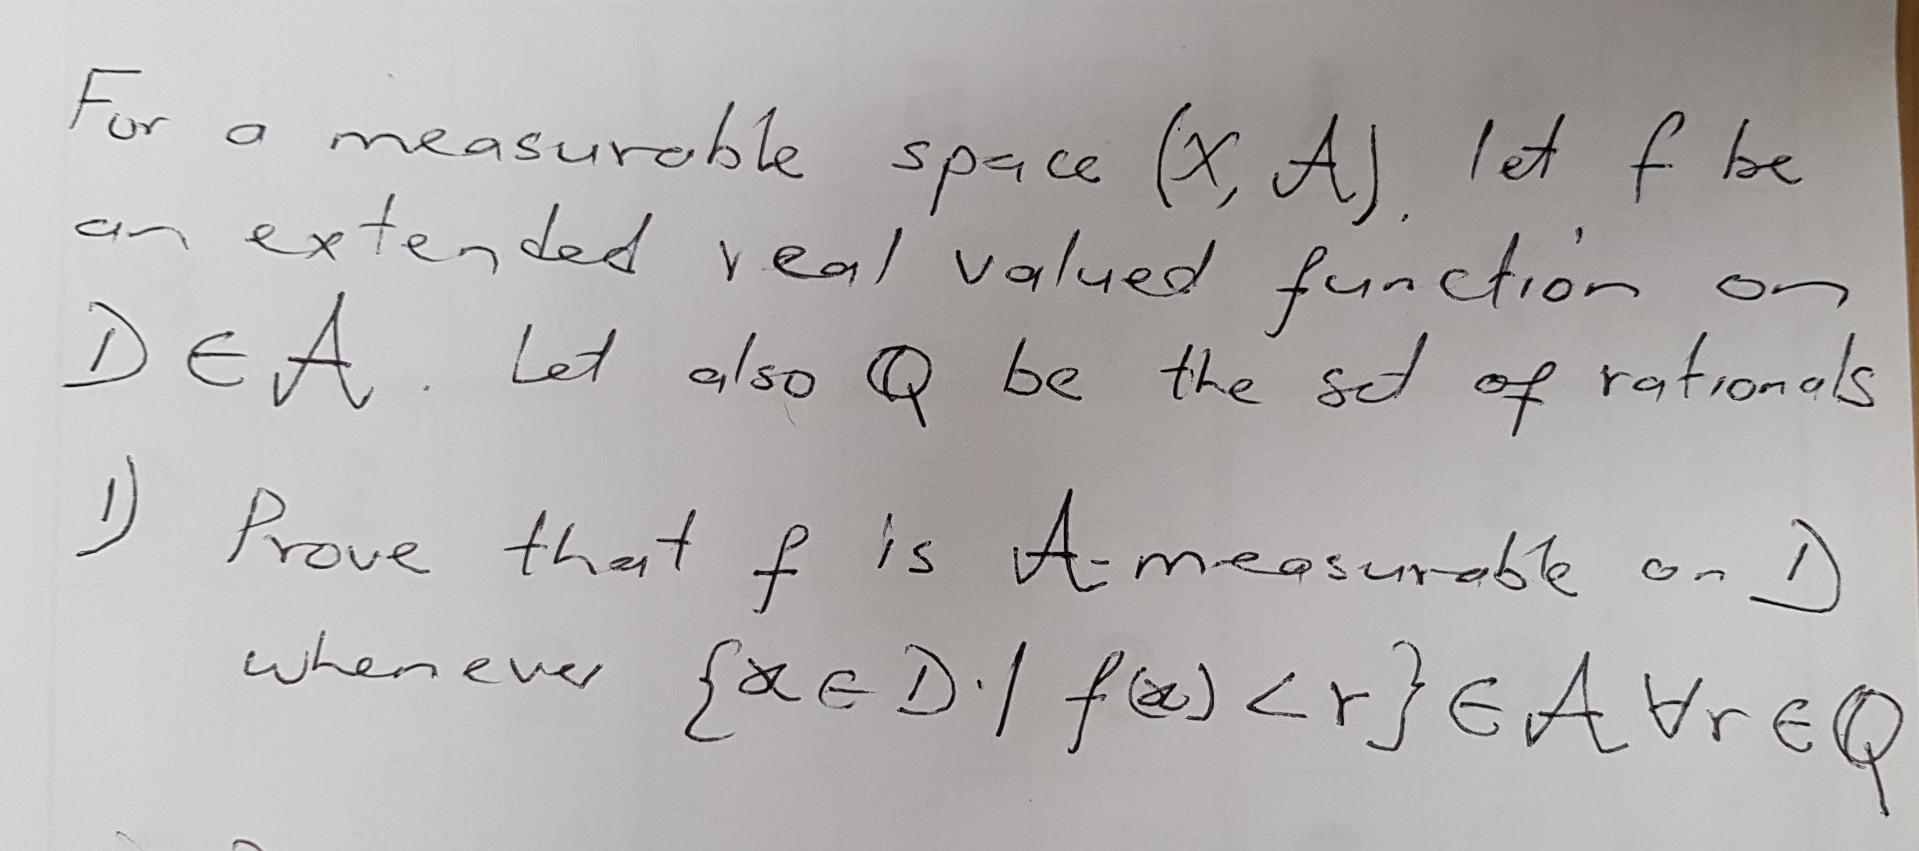 For a measurable space (X, A). let f be
an extended real valued function on
D ∈ A. Let also Q be the set of rationals
1) Prove that f is A-measurable on D
whenever {x ∈ D | f(x) < r} ∈ A ∀r ∈ Q